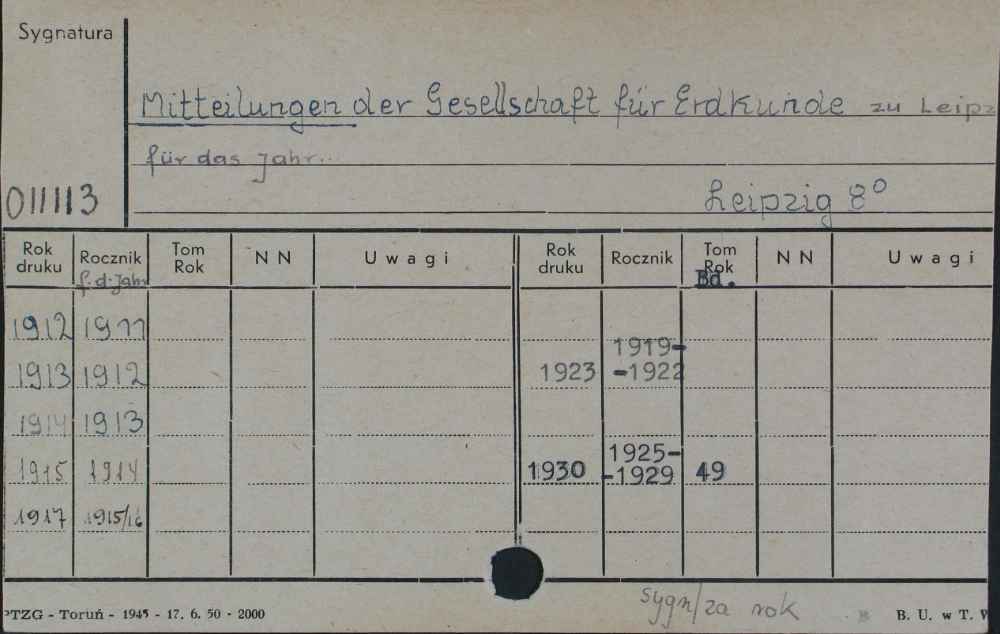 Sygnatura
Mitteilungen der Gesellschaft für Erdkunde zu Leipz
für das Jahr...
011113
Leipzig 8°
Rok druku Rocznik Tom Rok N N Uwagi Rok druku Rocznik Tom Rok N N Uwagi
f. d. Jahr Bd.
1912 1911
1919-
1913 1912 1923 -1922
1914 1913
1925-
1915 1914 1930 -1929 49
1917 1915/16
sygn/za rok
PTZG - Toruń - 1945 - 17. 6. 50 - 2000 B. U. w T.